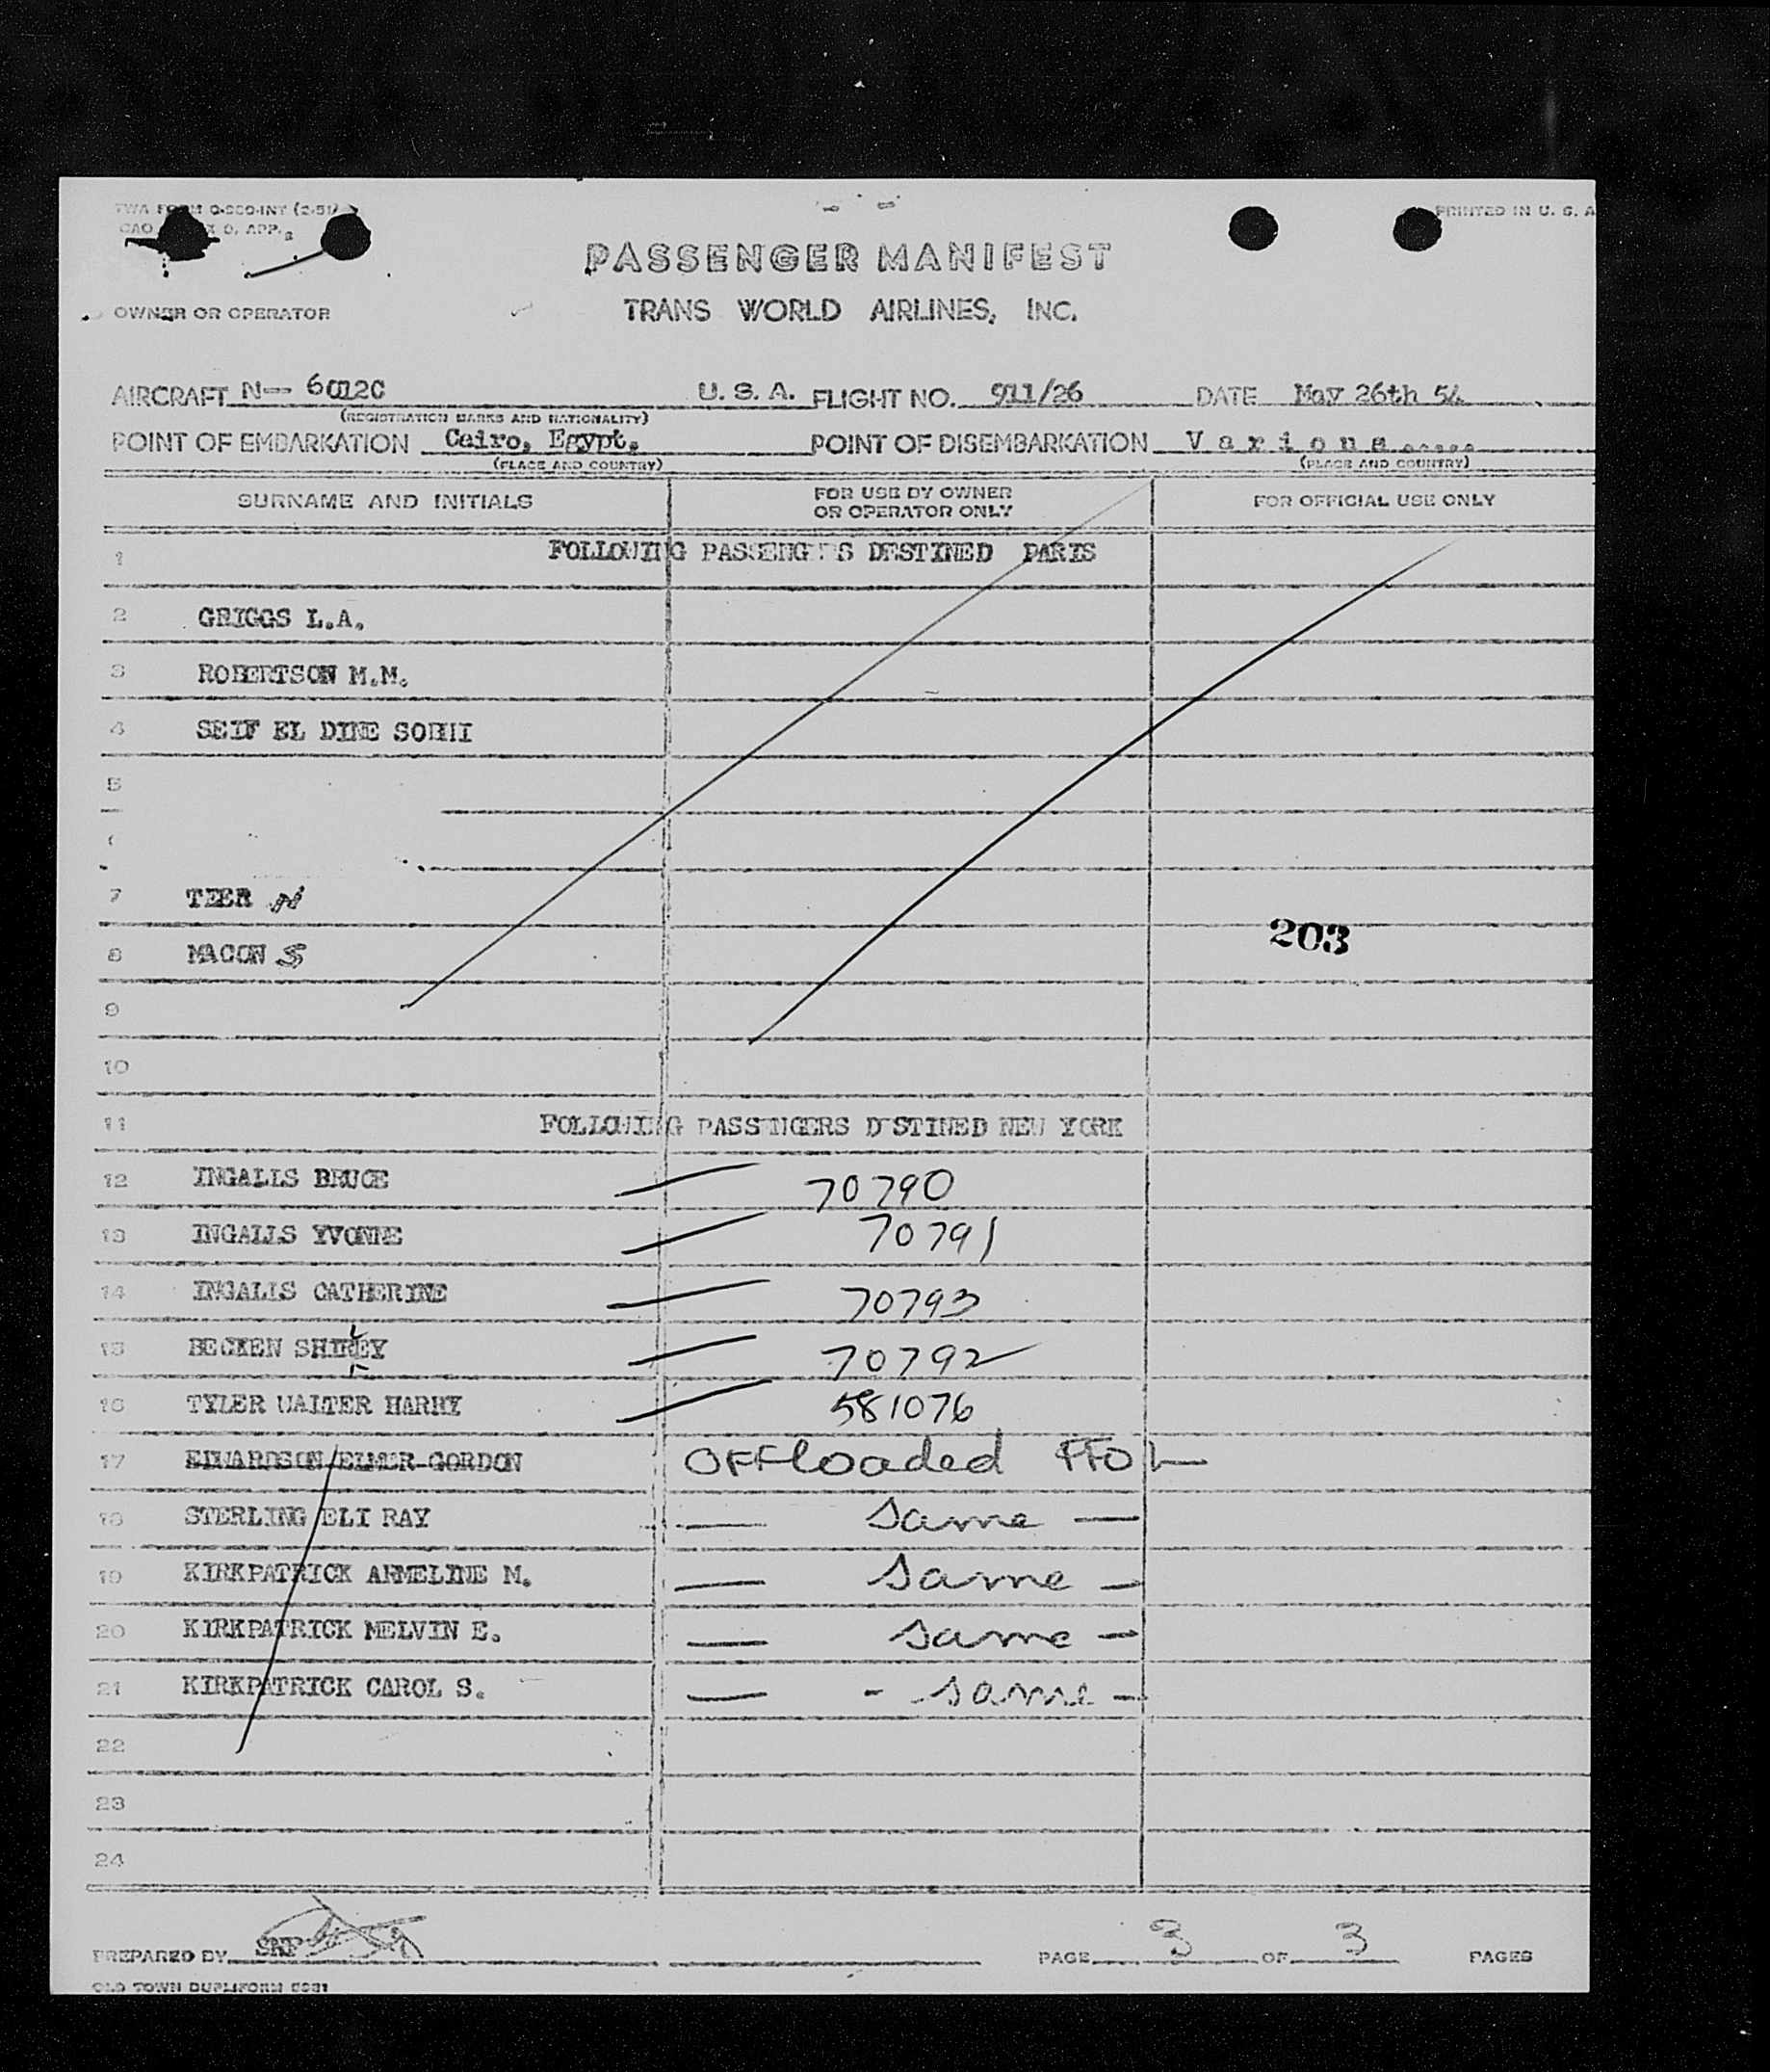 TWA FORM O-
PRINTED IN U. S. A
CAO
D. APP. 2
PASSENGER MANIFEST
OWNER OR OPERATOR
TRANS WORLD AIRLINES, INC.
AIRCRAFT N-- 6012C U. S. A. FLIGHT NO. 911/26 DATE May 26th 54
(REGISTRATION MARKS AND NATIONALITY)
POINT OF EMBARKATION Cairo, Egypt. POINT OF DISEMBARKATION V a r i o u s .....
(PLACE AND COUNTRY) (PLACE AND COUNTRY)
SURNAME AND INITIALS FOR USE BY OWNER OR OPERATOR ONLY FOR OFFICIAL USE ONLY
1 FOLLOWING PASSENGERS DESTINED PARIS
2 GRIGGS L.A.
3 ROBERTSON M.M.
4 SEIF EL DINE SOBHI
5
7 TEER N
8 MACON S
203
9
10
11 FOLLOWING PASSENGERS DESTINED NEW YORK
12 INGALLS BRUCE 70790
13 INGALLS YVONNE 70791
14 INGALLS CATHERINE 70793
15 BECKEN SHIRLEY 70792
16 TYLER WALTER HARRY 581076
17 EDWARDSON ELMER GORDON OFFloaded FFO
18 STERLING ELI RAY — same —
19 KIRKPATRICK ARMELINE M. — same —
20 KIRKPATRICK MELVIN E. — same —
21 KIRKPATRICK CAROL S. — - same —
22
23
24
PREPARED BY SRF PAGE 3 OF 3 PAGES
OLD TOWN DUPLIFORM